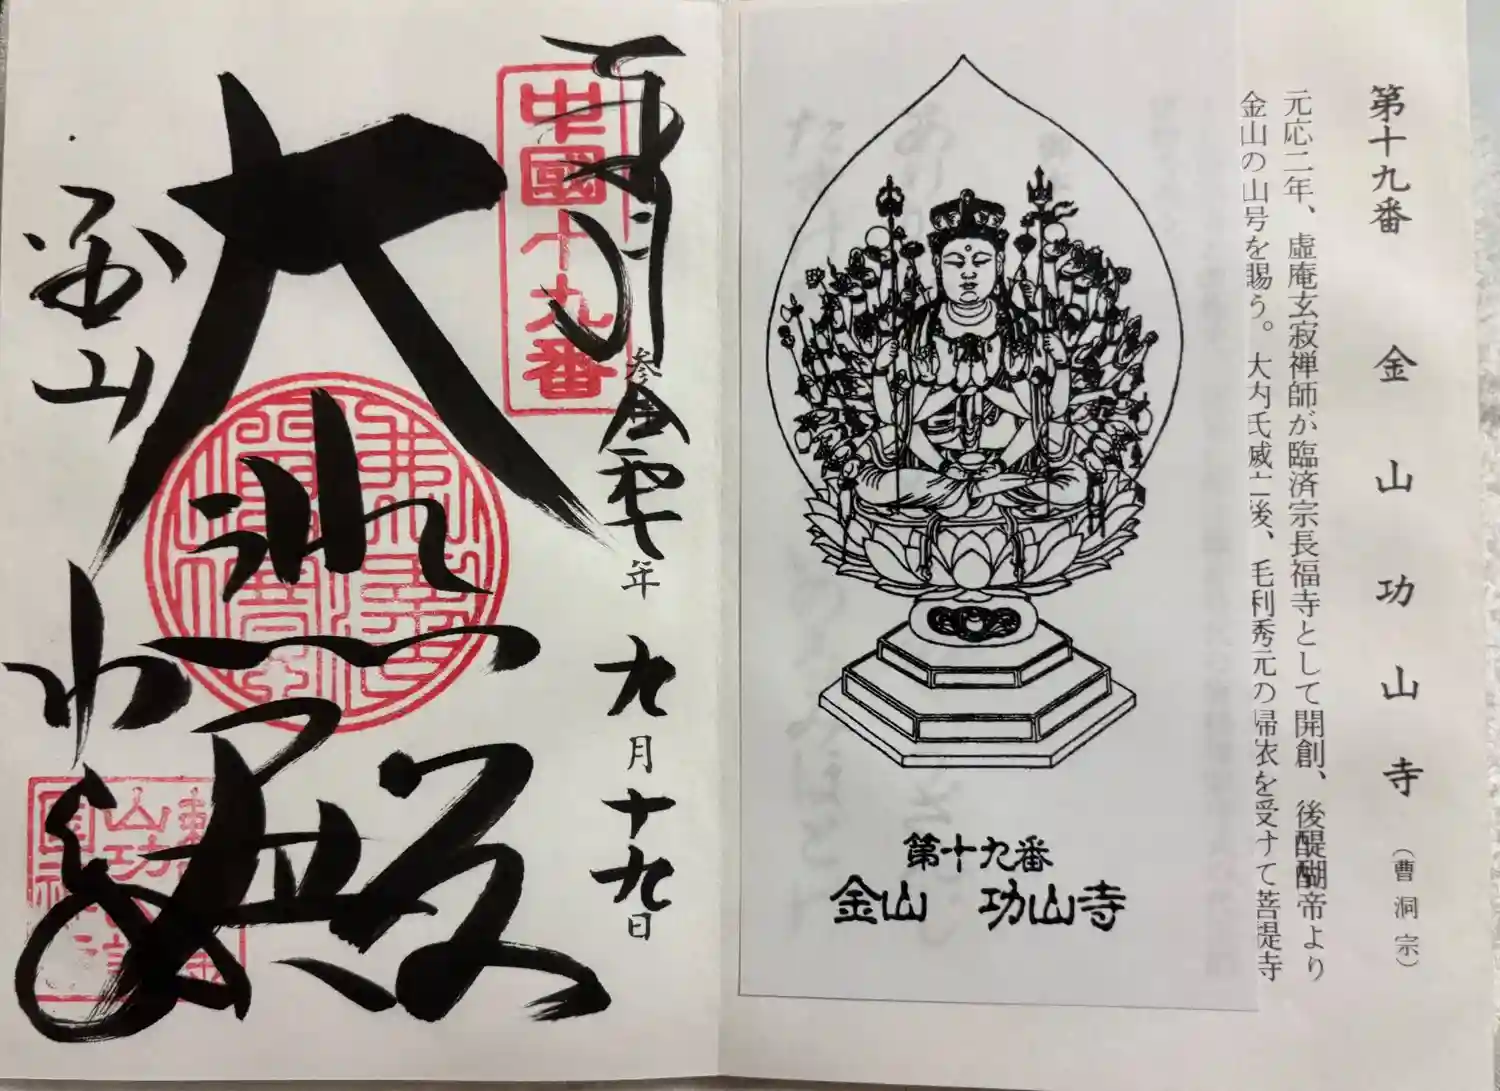 第十九番 金山功山寺 (曹洞宗)
元応二年、虚庵玄寂禅師が臨済宗長福寺として開創、後醍醐帝より
金山の山号を賜う。大内氏滅亡後、毛利秀元の帰依を受けて菩提寺
第十九番
金山 功山寺
奉拝
中國十九番
年 九月十九日
大悲殿
金山
功山寺